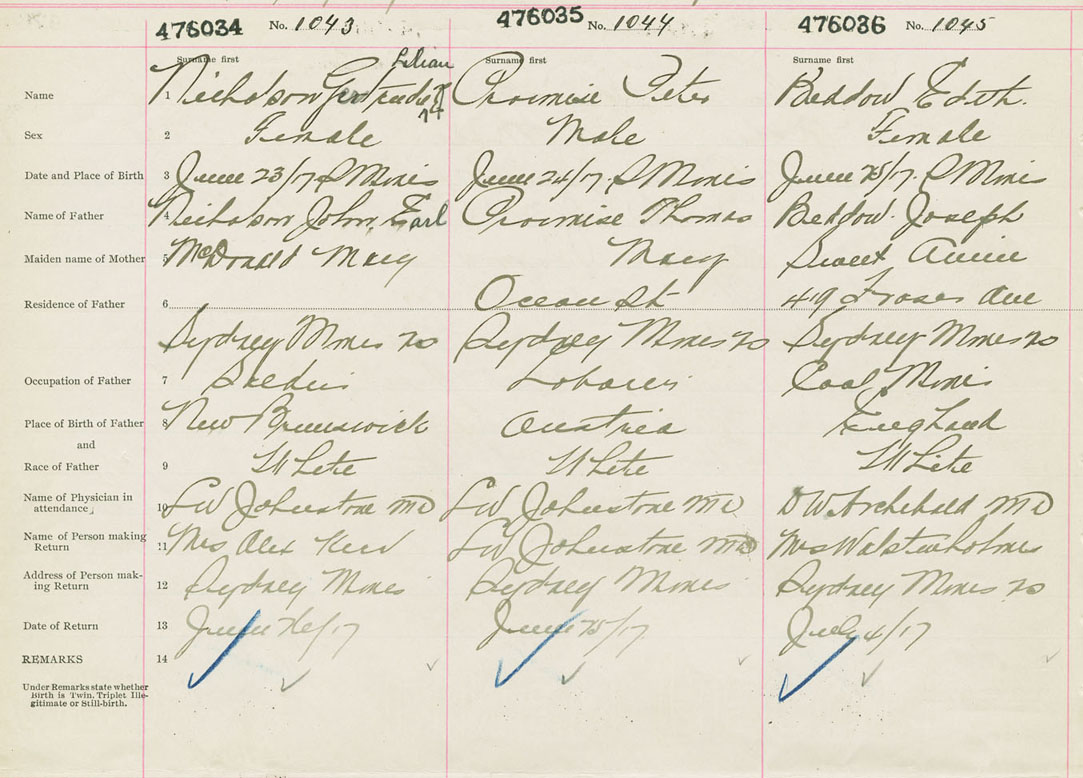 476034 No. 1043 476035 No. 1044 476036 No. 1045
Surname first Surname first Surname first
Lilian
Name 1 Nicholson Gertrude Promise Peter Beddow Edith.
Sex 2 Female Male Female
Date and Place of Birth 3 June 23/17 S Mines June 24/17. S Mines June 25/17. S Mines
Name of Father 4 Nicholson John, Earl Promise Thomas Beddow Joseph
Maiden name of Mother 5 McDonald Mary Mary Sweet Annie
Residence of Father 6 Ocean St 49 Fraser Ave
Sydney Mines NS Sydney Mines NS Sydney Mines NS
Occupation of Father 7 Soldier Labourer Coal Miner
Place of Birth of Father 8 New Brunswick Austria England
and
Race of Father 9 White White White
Name of Physician in attendance 10 LW Johnstone MD LW Johnstone MD DW Archibald MD
Name of Person making Return 11 Mrs Alex LW Johnstone MD Mrs Wolstenholme
Address of Person making Return 12 Sydney Mines Sydney Mines Sydney Mines NS
Date of Return 13 June 26/17 June 25/17 July 4/17
REMARKS 14
Under Remarks state whether
Birth is Twin, Triplet Ille-
gitimate or Still-birth.